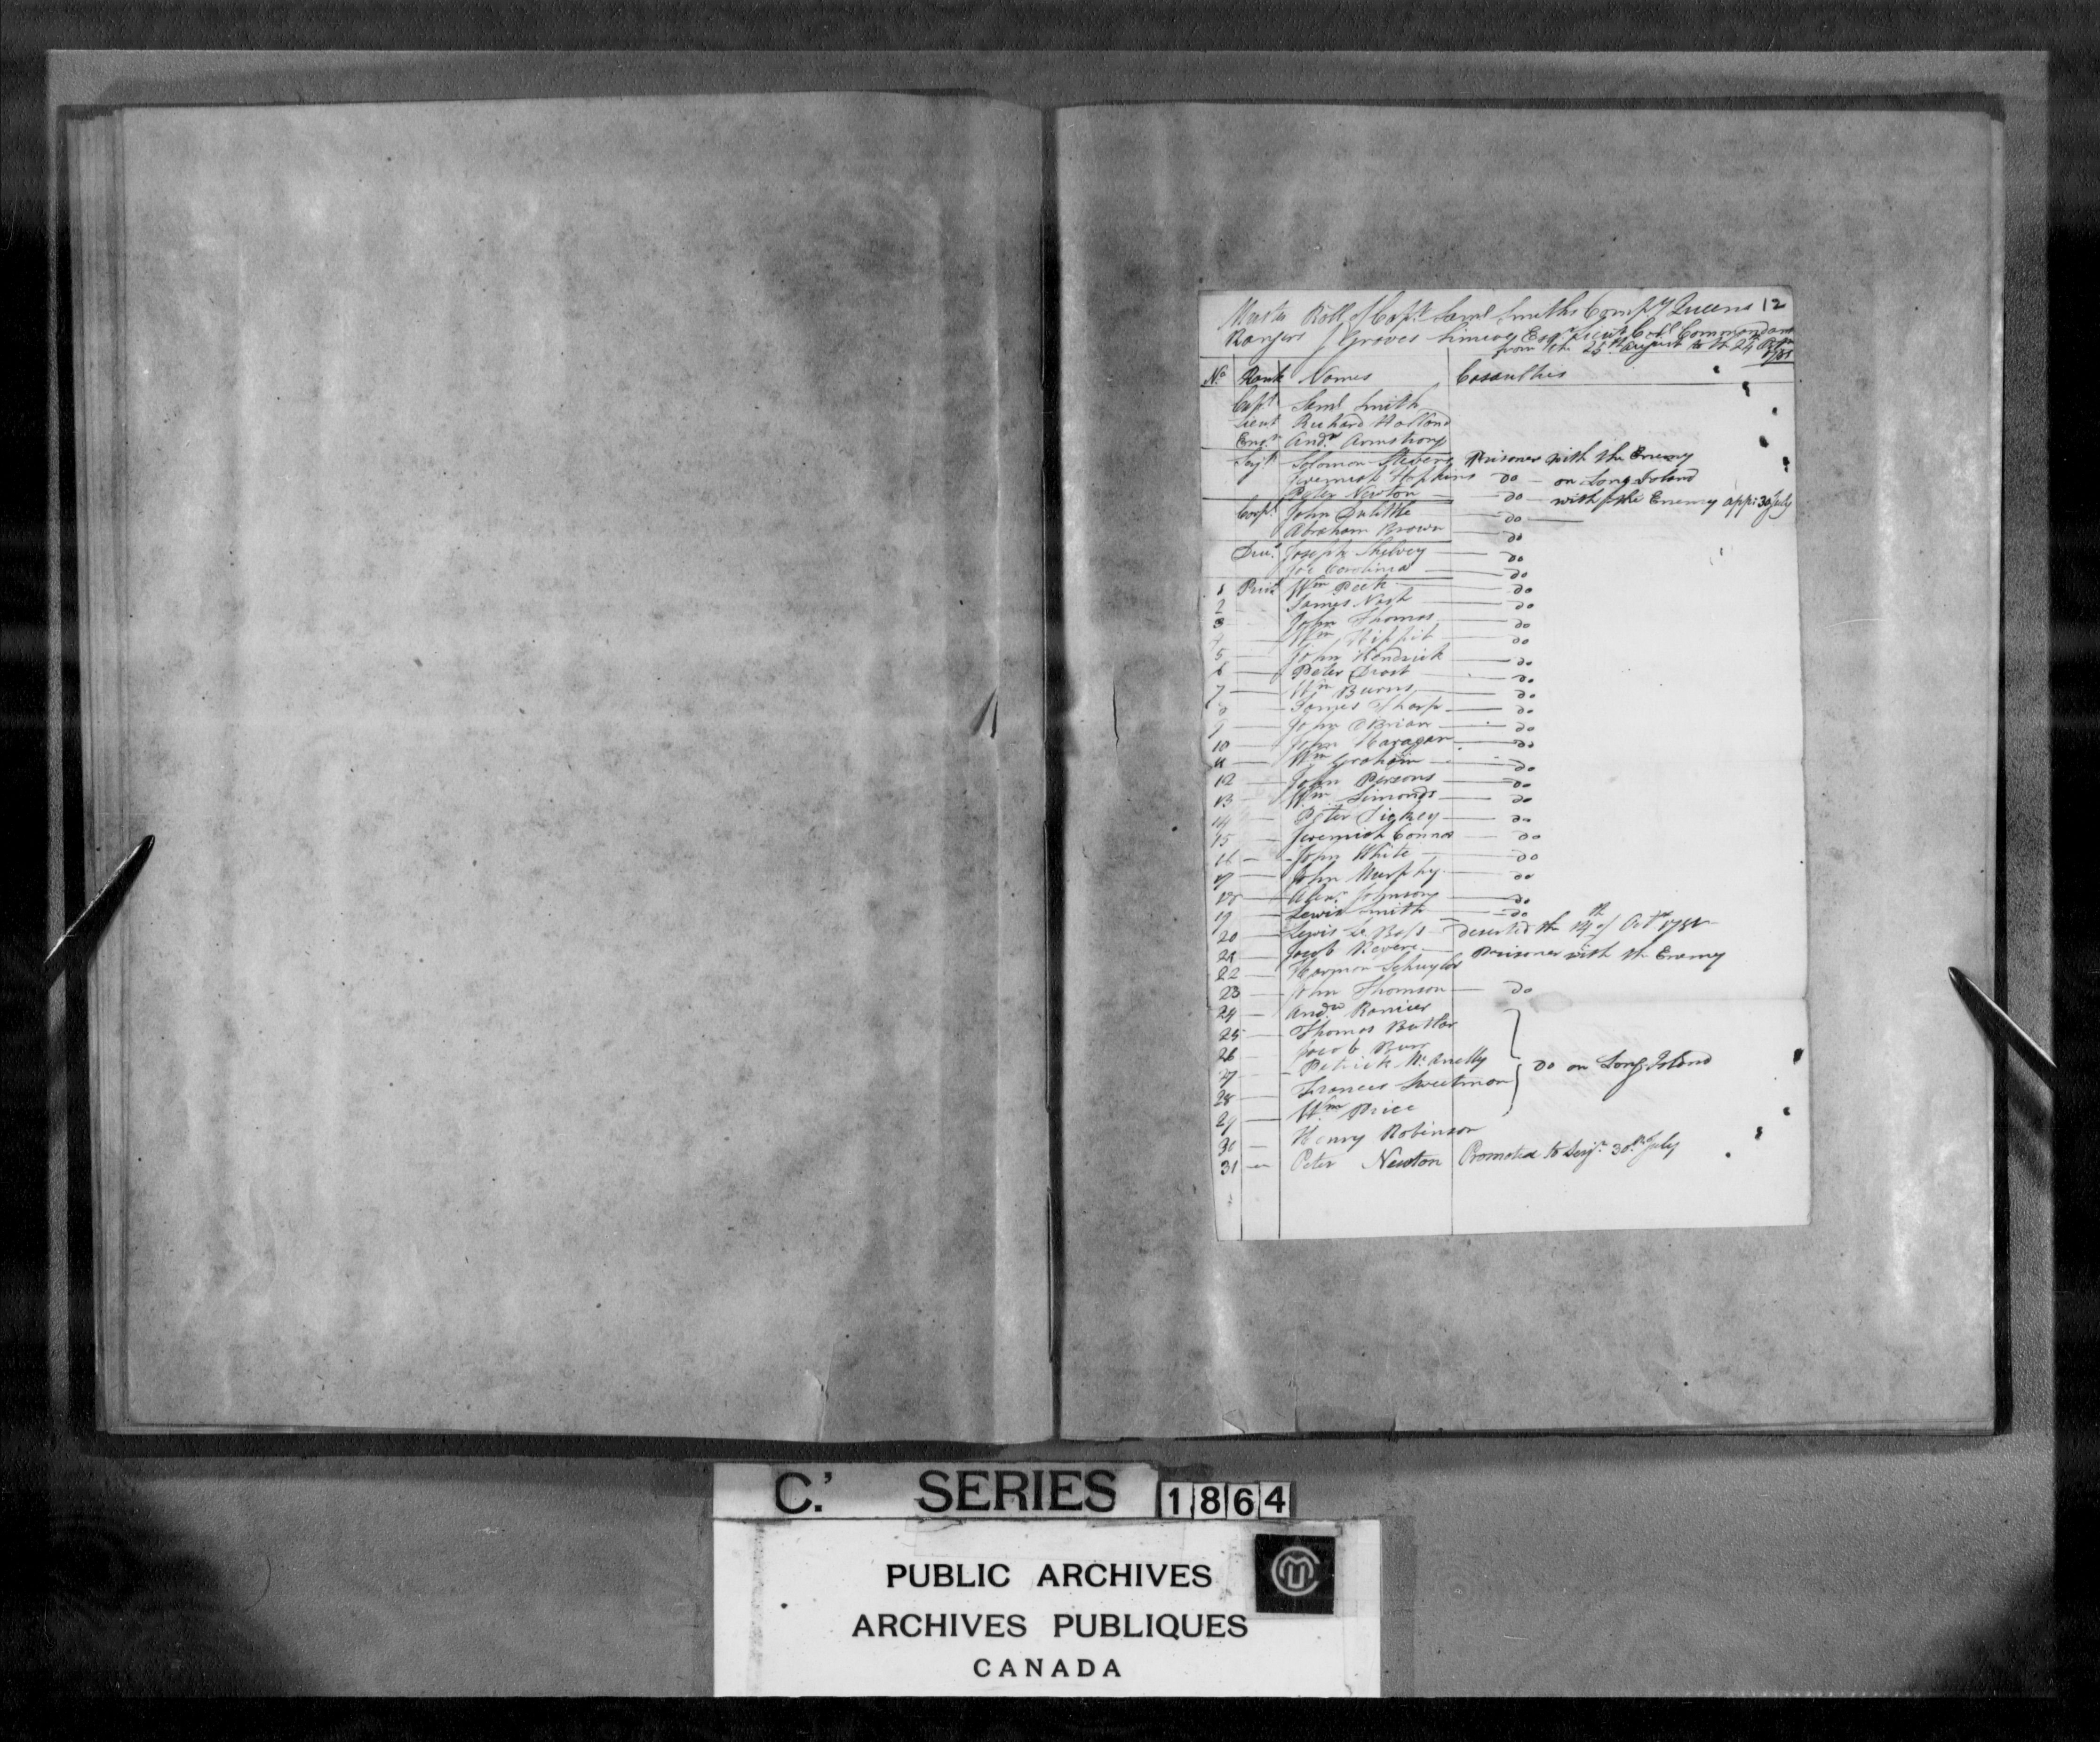 Muster Roll of Capt. Saml Smiths Compy Queens 12
Rangers J Graves Simcoe Esqr Lieut Coll Commandant
from the 25th August to the 24th
No. Rank Names Casualties
Capt. Saml Smith
Lieut Richard Holland
Ensn Andw Armstrong
Serjt Solomon Stevens Prisoner with the Enemy
Jeremiah Hopkins Do on Long Island
Peter Newton Do with the Enemy app: 30 July
Corpl John Dulittle Do
Abraham Brown Do
Drum. Joseph Shelvey Do
Joe Carolina Do
1 Privt Wm Peek Do
2 James Nash Do
3 John Thomas Do
4 Wm Do
5 John Hendrick Do
6 Peter Drost Do
7 Wm Burns Do
8 James Tharp Do
9 John OBrian Do
10 John Haragan Do
11 Wm Graham Do
12 John Persons Do
13 Wm Simonds Do
14 Peter Do
15 Jeremiah Connor Do
16 John White Do
17 John Murphy Do
18 Alexr Johnson Do
19 Lewis Smith Do
20 Lewis Le Bass Deserted the 14th of Octr
21 Jacob Prisoner with the Enemy
22 Harmon Schuyler
23 John Thomson Do
24 Andw Ranier
25 Thomas Butler
26 Jacob Burr
27 Patrick McAnelly Do on Long Island
28 Frances Sweetman
29 Wm Price
30 Henry Robinson
31 Peter Newton Promoted to Serjt 30th July
C.' SERIES 1864
PUBLIC ARCHIVES
ARCHIVES PUBLIQUES
CANADA